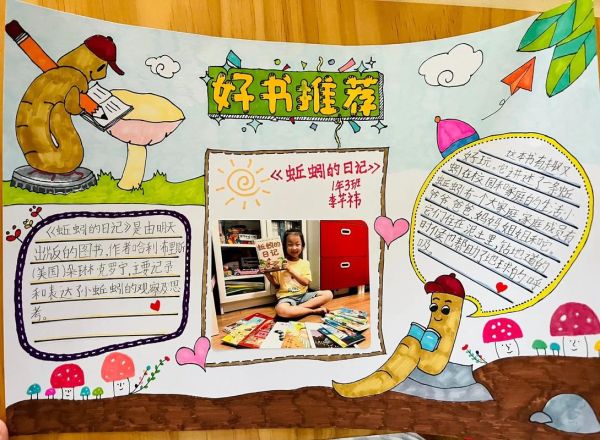 好书推荐
《蚯蚓的日记》
1年3班
《蚯蚓的日记》是由明天
出版的图书,作者哈利·布里斯
(美国)朵琳·克罗宁,主要记录
和表达了小蚯蚓的观察及思
考。
蚯蚓的
日记
这本书有趣又
好玩,
蚯蚓在校园和家庭的生活,小
蚯蚓有一个大家庭,家庭成员有
爷爷爸爸妈妈姐姐来吧
它们住在泥土里,钻地道的
时候可
吸